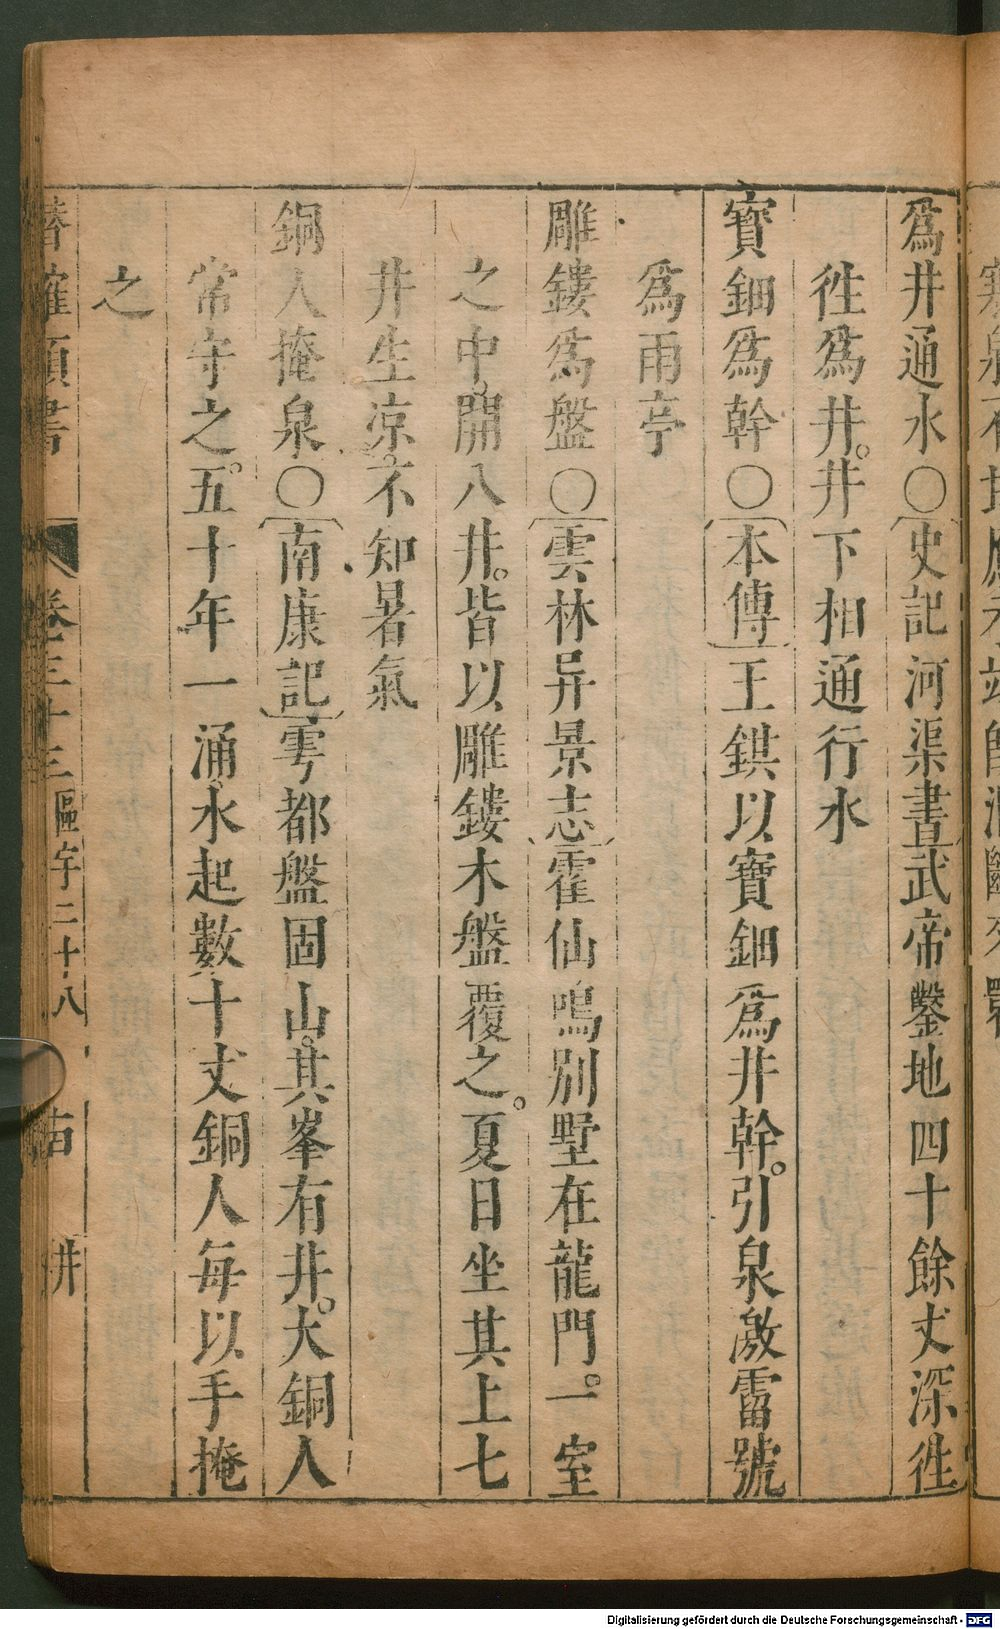 爲井通水〇史記河渠書武帝鑿地四十餘丈深徃
徃爲井。井下相通行水
寳鈿爲幹〇本傳王鉷以寳鈿爲井幹。引泉激霤號
爲雨亭
雕鏤爲盤〇雲林异景志霍仙鳴別墅在龍門。一室
之中。開八井。皆以雕鏤木盤覆之。夏日坐其上七
井生凉。不知暑氣
銅人掩泉〇南康記雩都盤固山。其峯有井。大銅人
常守之。五十年一涌。水起數十丈銅人每以手掩
之
卷三十三 區宇二十八 井
Digitalisierung gefördert durch die Deutsche Forschungsgemeinschaft - DFG